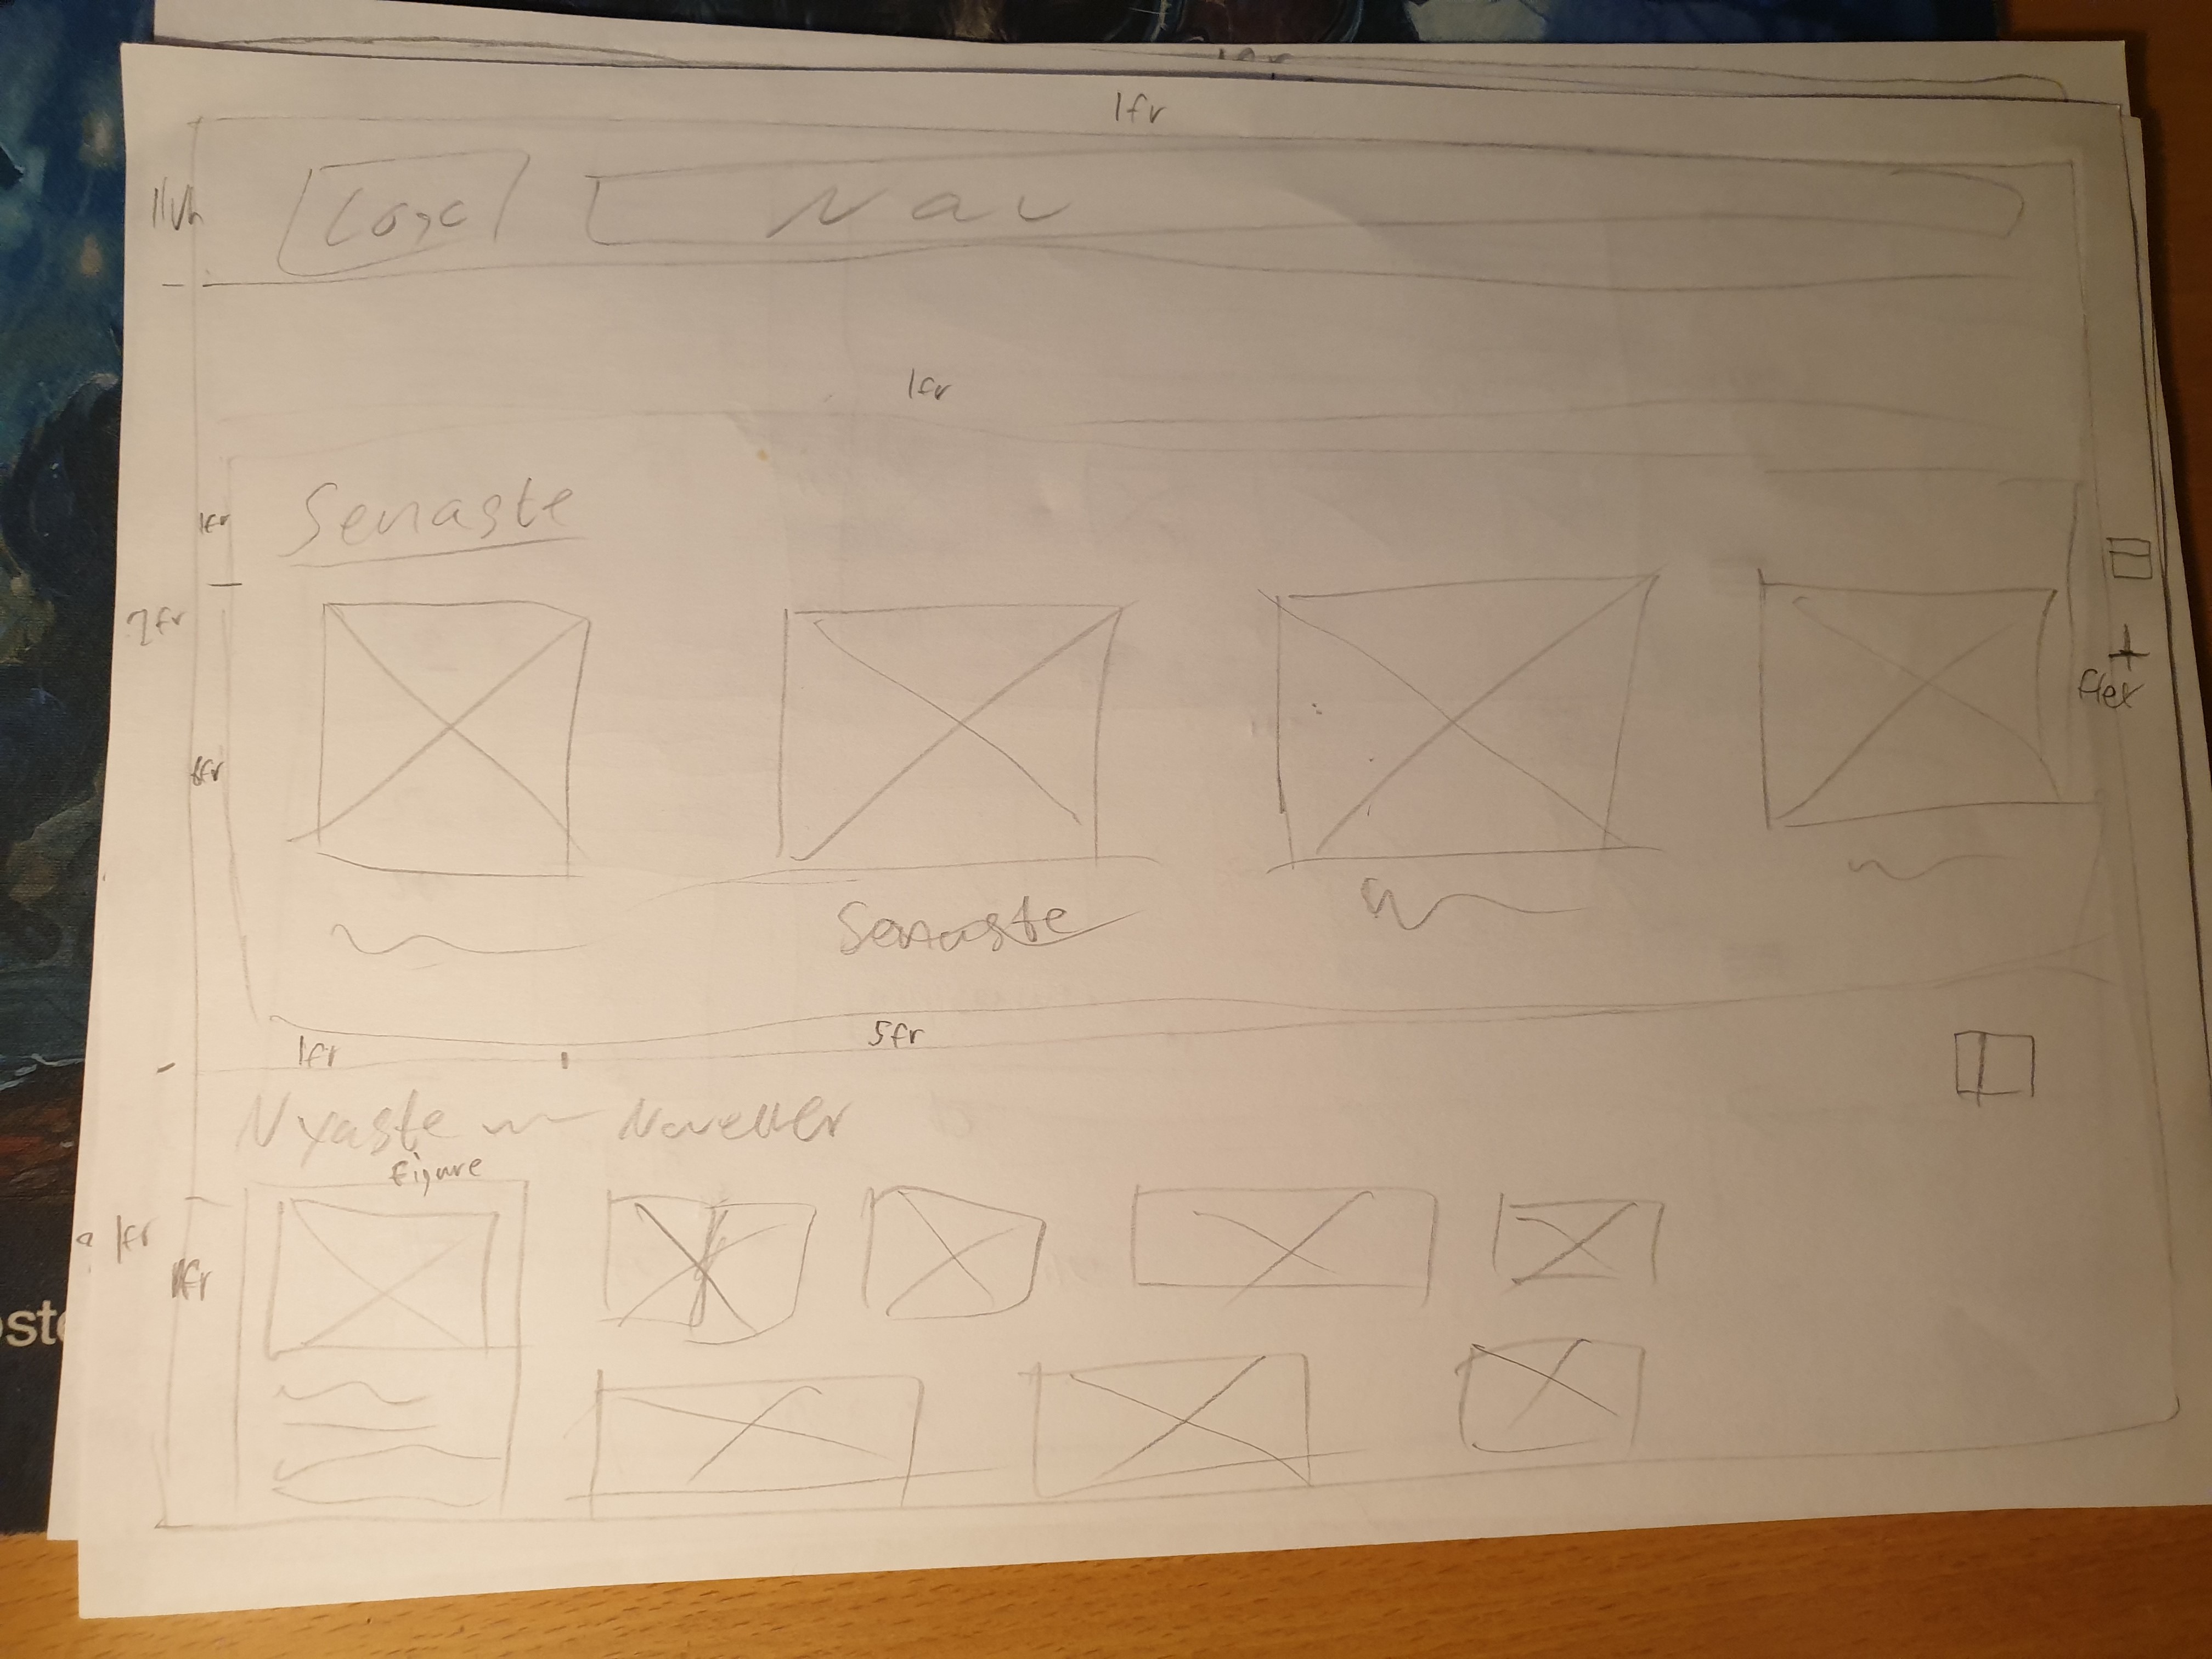 1fr
Logo
Nav
1fr
Senaste
1fr
2fr
flex
6fr
Senaste
1fr
5fr
Nyaste
Noveller
Figure
1fr
1fr